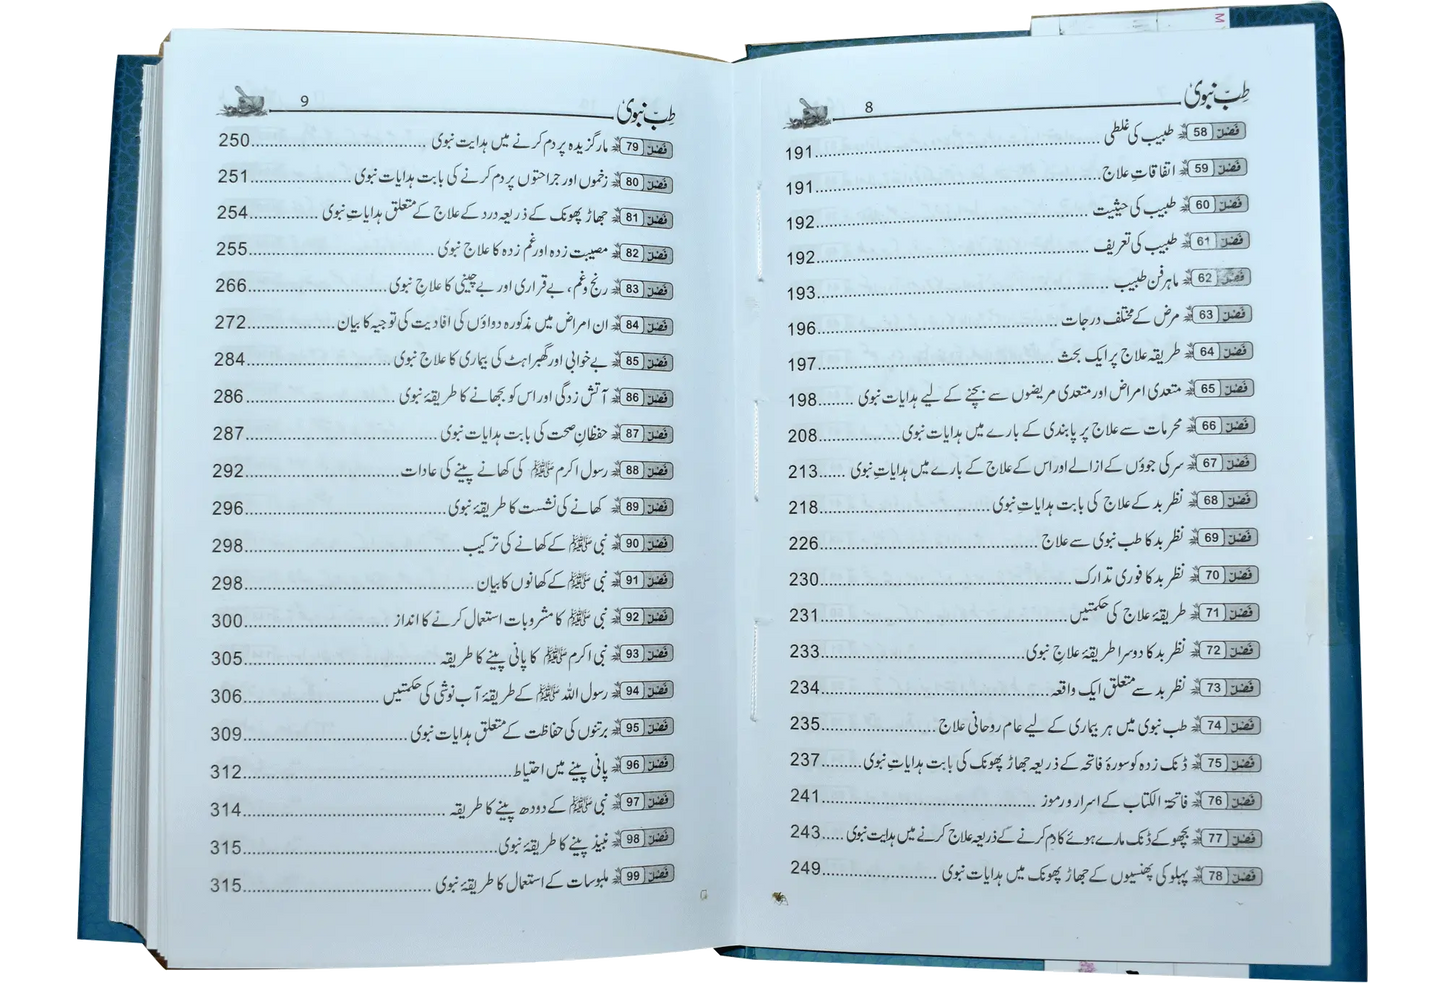 طِبّ نبویؐ 8
فَصْل 58 طبیب کی غلطی 191
فَصْل 59 اتفاقاتِ علاج 191
فَصْل 60 طبیب کی حیثیت 192
فَصْل 61 طبیب کی تعریف 192
فَصْل 62 ماہر فن طبیب 193
فَصْل 63 مرض کے مختلف درجات 196
فَصْل 64 طریقہ علاج پر ایک بحث 197
فَصْل 65 متعدی امراض اور متعدی مریضوں سے بچنے کے لیے ہدایات نبوی 198
فَصْل 66 محرمات سے علاج پر پابندی کے بارے میں ہدایات نبوی 208
فَصْل 67 سر کی جوؤں کے ازالے اور اس کے علاج کے بارے میں ہدایاتِ نبوی 213
فَصْل 68 نظر بد کے علاج کی بابت ہدایاتِ نبوی 218
فَصْل 69 نظر بد کا طب نبوی سے علاج 226
فَصْل 70 نظر بد کا فوری تدارک 230
فَصْل 71 طریقۂ علاج کی حکمتیں 231
فَصْل 72 نظر بد کا دوسرا طریقۂ علاجِ نبوی 233
فَصْل 73 نظر بد سے متعلق ایک واقعہ 234
فَصْل 74 طب نبوی میں ہر بیماری کے لیے عام روحانی علاج 235
فَصْل 75 ڈنک زدہ کو سورۂ فاتحہ کے ذریعہ جھاڑ پھونک کی بابت ہدایاتِ نبوی 237
فَصْل 76 فاتحۃ الکتاب کے اسرار و رموز 241
فَصْل 77 بچھو کے ڈنک مارے ہوئے کا دم کرنے کے ذریعہ علاج کرنے میں ہدایت نبوی 243
فَصْل 78 پہلو کی پھنسیوں کے جھاڑ پھونک میں ہدایات نبوی 249
طِبّ نبویؐ 9
فَصْل 79 مار گزیدہ پر دم کرنے میں ہدایت نبوی 250
فَصْل 80 زخموں اور جراحتوں پر دم کرنے کی بابت ہدایات نبوی 251
فَصْل 81 جھاڑ پھونک کے ذریعہ درد کے علاج کے متعلق ہدایاتِ نبوی 254
فَصْل 82 مصیبت زدہ اور غم زدہ کا علاج نبوی 255
فَصْل 83 رنج و غم، بے قراری اور بے چینی کا علاجِ نبوی 266
فَصْل 84 ان امراض میں مذکورہ دواؤں کی افادیت کی توجیہ کا بیان 272
فَصْل 85 بے خوابی اور گھبراہٹ کی بیماری کا علاج نبوی 284
فَصْل 86 آتش زدگی اور اس کو بجھانے کا طریقۂ نبوی 286
فَصْل 87 حفظانِ صحت کی بابت ہدایات نبوی 287
فَصْل 88 رسول اکرم ﷺ کی کھانے پینے کی عادات 292
فَصْل 89 کھانے کی نشست کا طریقۂ نبوی 296
فَصْل 90 نبی ﷺ کے کھانے کی ترکیب 298
فَصْل 91 نبی ﷺ کے کھانوں کا بیان 298
فَصْل 92 نبی ﷺ کا مشروبات استعمال کرنے کا انداز 300
فَصْل 93 نبی اکرم ﷺ کا پانی پینے کا طریقہ 305
فَصْل 94 رسول اللہ ﷺ کے طریقۂ آب نوشی کی حکمتیں 306
فَصْل 95 برتنوں کی حفاظت کے متعلق ہدایات نبوی 309
فَصْل 96 پانی پینے میں احتیاط 312
فَصْل 97 نبی ﷺ کے دودھ پینے کا طریقہ 314
فَصْل 98 نبیذ پینے کا طریقۂ نبوی 315
فَصْل 99 ملبوسات کے استعمال کا طریقۂ نبوی 315